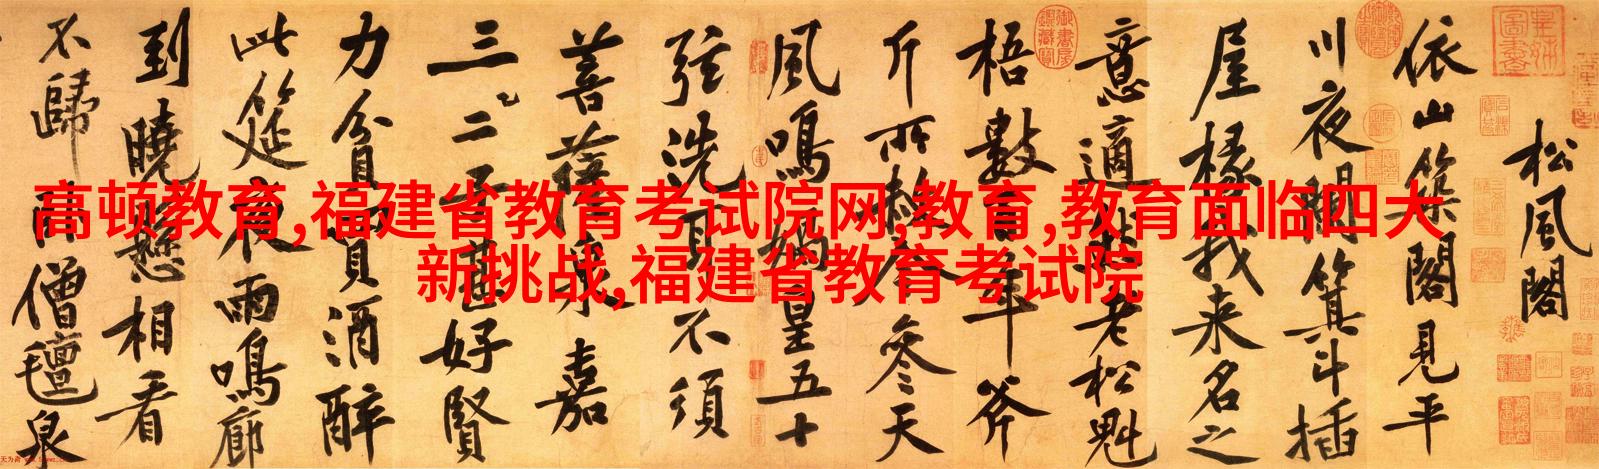 高顿教育,福建省教育考试院网,教育,教育面临四大
新挑战,福建省教育考试院
松風閣
依山築閣見平
川夜闌箕斗插
屋椽我來名之
意適然老松魁
梧數百年斧
斤所赦今參天
風鳴媧皇五十
弦洗耳不須
菩薩泉嘉
三二子甚好賢
力貧買酒醉
此筵夜雨鳴廊
到曉懸相看
不歸卧僧氈泉